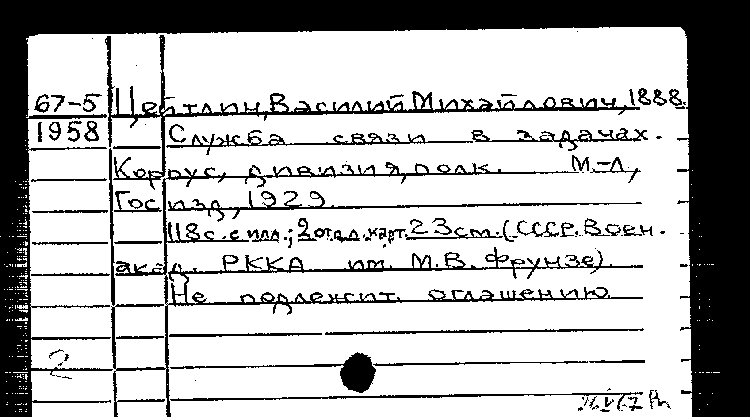 67-5 Цейтлин, Василий Михайлович, 1888.
1958 Служба связи в задачах.
Корпус, дивизия, полк. М.-Л,
Госизд, 1929.
118с. с илл.; 2 отд. карт. 23см. (СССР. Воен.
акад. РККА им. М.В. Фрунзе).
Не подлежит оглашению
2